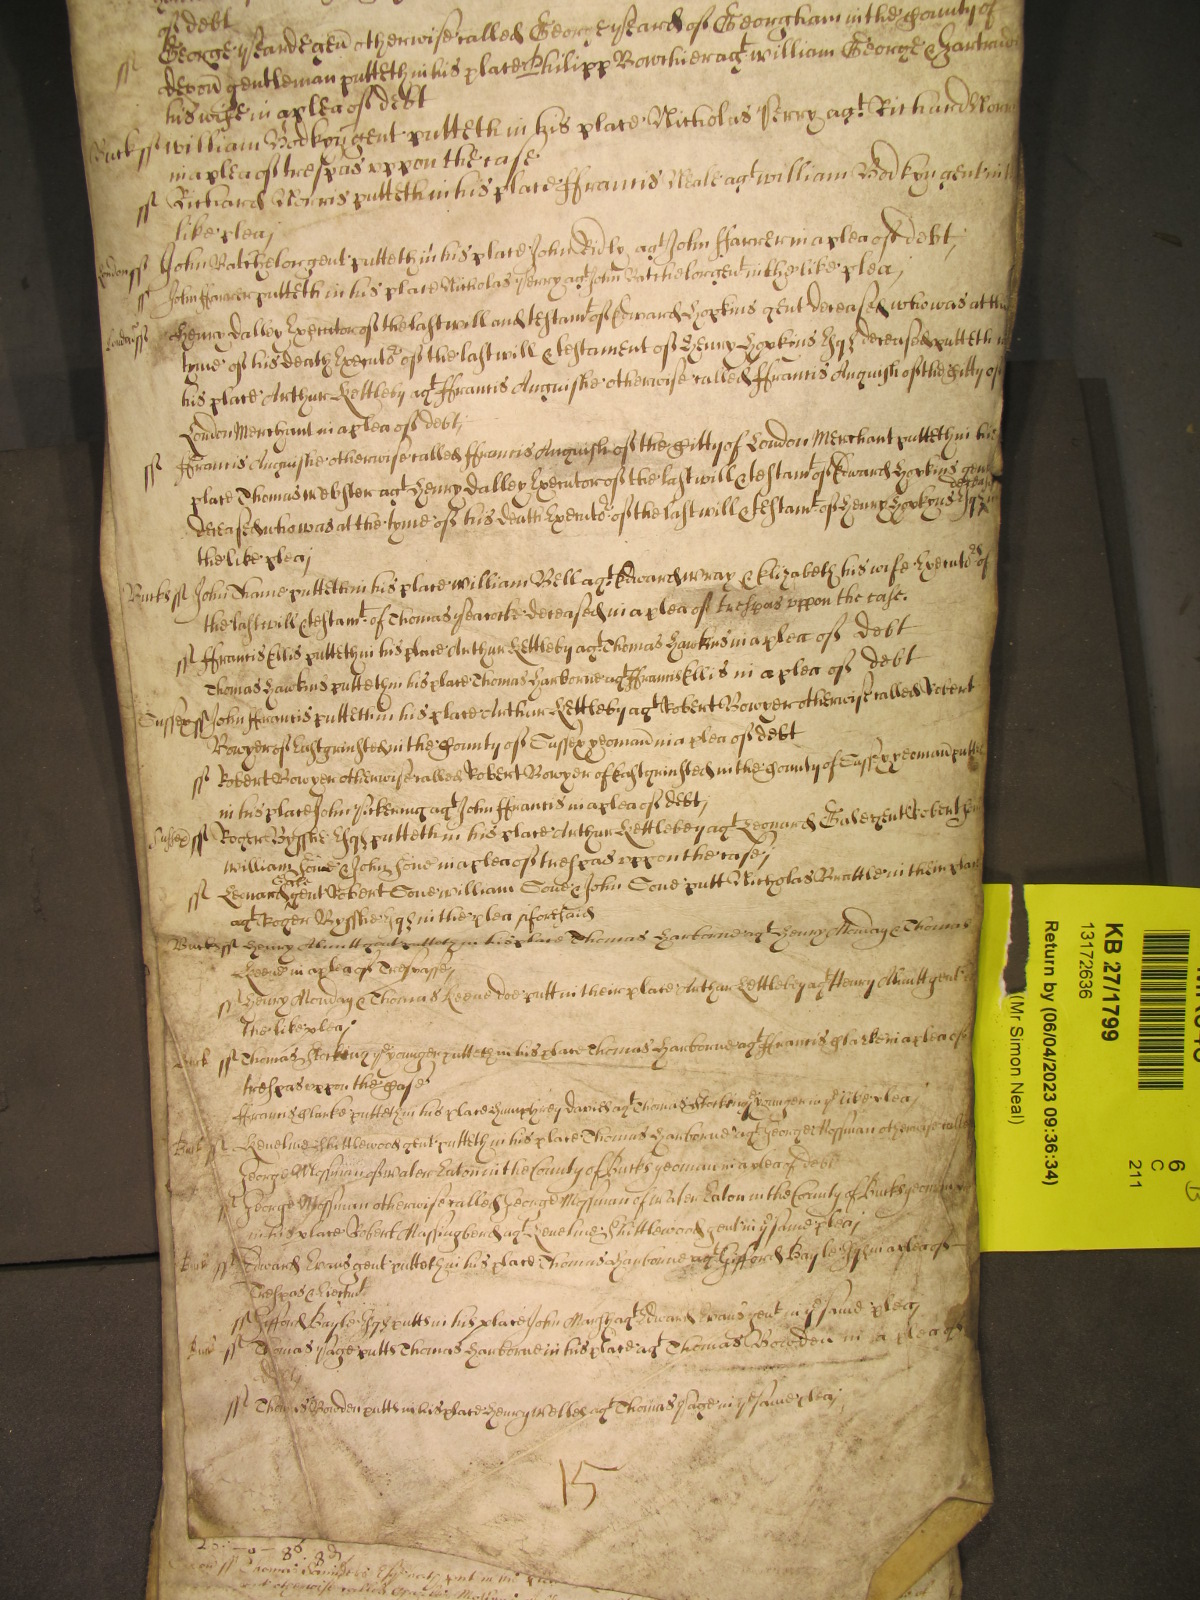 of debt
ss George Yeard gen̄ otherwise called George Yeard of Georgham in the County of
devon̄ gentleman putteth in his place Philipp Bowchier agt William George &
his wife in a plea of debt
Buck ss William Bodkyn gent putteth in his place Nicholas Perry agt Richard Norris
in a plea of trespas vppon the case
ss Richard Norris putteth in his place ffrancis Neale agt William Bodkyn gent in
like plea
London ss John Batchelor gent putteth in his place John Ridly agt John ffarrer in a plea of debt
ss John ffarrer putteth in his place Nicholas Perry agt John Batchelor gent in the like plea
London ss Henry Dalley Executor of the last will and testamt of Edward Hopkins gent deceased who was at the
tyme of his death Executor of the last will & testament of Henry Hopkins Esqr deceased putteth in
his place Arthur Kettleby agt ffrancis Anguishe otherwise called ffrancis Anguish of the Citty of
London Merchant in a plea of debt
ss ffrancis Anguishe otherwise called ffrancis Anguish of the Citty of London Merchant putteth in his
place Thomas Webster agt Henry Dalley Executor of the last will & testamt of Edward Hopkins gent
deceased who was at the tyme of his death Executor of the last will & testamt of Henry Hopkins Esqr deceased in
the like plea
Bucks ss John Thame putteth in his place William Bell agt Edward Wray & Elizabeth his wife Executors of
the last will & testamt of Thomas Peacocke deceased in a plea of trespas vppon the case.
ss ffrancis Ellis putteth in his place Arthur Kettleby agt Thomas Hawkins in a plea of debt
Thomas Hawkins putteth in his place Thomas Harborne agt ffrancis Ellis in a plea of debt
Sussex ss John ffrancis putteth in his place Arthur Kettleby agt Robert Bowyer otherwise called Robert
Bowyer of Eastgrinsted in the County of Sussex yeoman̄ in a plea of debt
ss Robert Bowyer otherwise called Robert Bowyer of Eastgrinsted in the County of Sussex yeoman̄ putteth
in his place John Pickering agt John ffrancis in a plea of debt
Sussex ss Roger Bysshe Esqr putteth in his place Arthur Kettlebey agt Leonard Gale gent Robert Sone
William Sone & John Sone in a plea of trespas vppon the case
ss Leonard Gale gent Robert Sone William Sone & John Sone putt Nicholas Brattle in their place
agt Roger Bysshe Esqr in the plea aforesaid
Bucks ss Henry Abnitt gent putteth in his place Thomas Harborne agt Henry Monday & Thomas
Keene in a plea of Trespasse
ss Henry Monday & Thomas Keene doe putt in their place Arthur Kettlebey agt Henry Abnitt gent in
the like plea
Buck ss Thomas Stockin ye younger putteth in his place Thomas Harborne agt ffrancis Clarke in a plea of
trespas vppon the Case
ffrancis Clarke putteth in his place Humphrey Davies agt Thomas ye younger in ye like plea
Buck ss Keneline Shittlewood gent putteth in his place Thomas Harborne agt George Mossman otherwise called
George Mossman of Water Eaton in the County of Bucks yeoman in a plea of debt
ss George Mossman otherwise called George Mossman of Water Eaton in the County of Bucks yeoman
in his place Robert Massingberd agt Keneline Shittlewood gent in ye same plea
Buck ss Edward Evans gent putteth in his place Thomas Harborne agt Gifford Bayle Esqr in a plea of
Trespas & Eiectmt
ss Gifford Bayle Esqr putts in his place John Marsh agt Edward Evans gent in ye same plea
Buck ss Thomas Page putts Thomas Harborne in his place agt Thomas Bowden in a plea of
debt
ss Thomas Bowden putts in his place Henry Welles agt Thomas Page in ye same plea
15
KB 27/1799
13172636
Return by (06/04/2023 09:36:34)
(Mr Simon Neal)
6
C
211